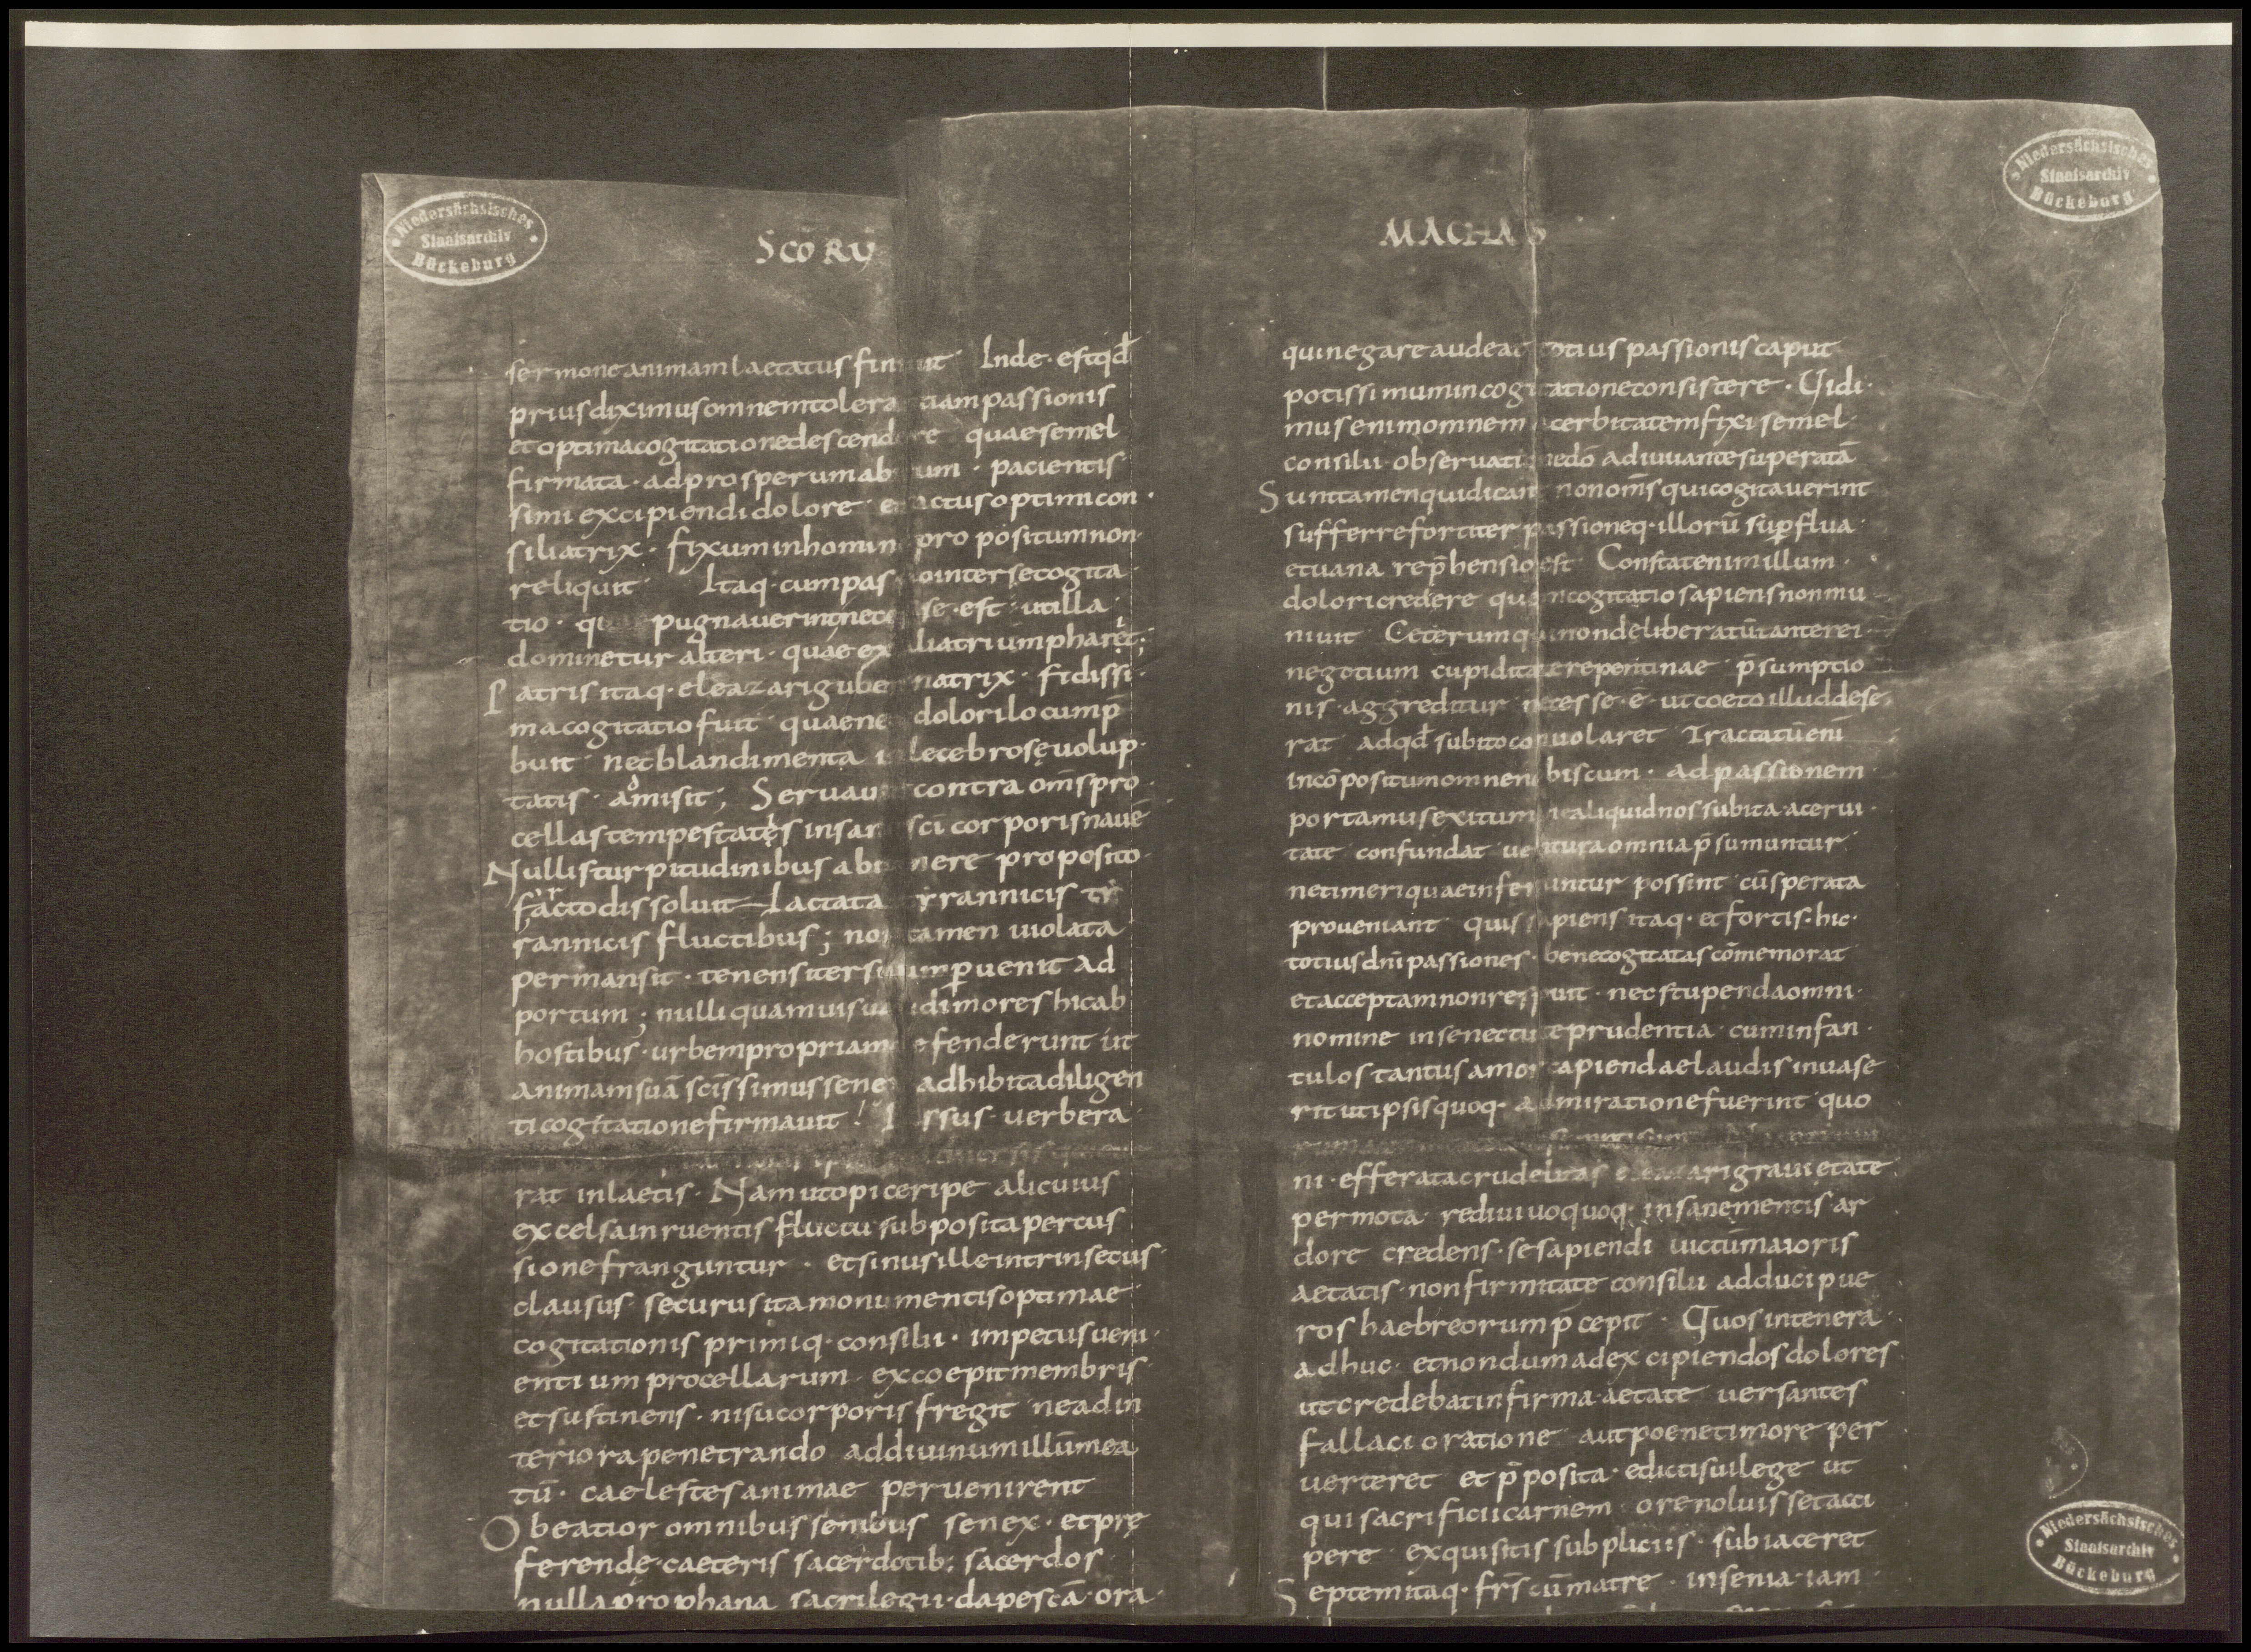 Niedersächsisches
Staatsarchiv
Bückeburg
SCORŪ
sermone animam lactatus fin it Inde · est qđ
prius diximus omnem tolera tiam passionis
et optima cogitatione descend re quae semel
firmata · ad prosperum ab um · pacientis
simi excipiendi dolore e actus optimi con ·
siliatrix · fixum in homin pro positum non
reliquit Itaq · cum pas o inter se cogita
tio · pugnaverint nece se · est · ut illa
dominetur alteri · quae ex lia triumpharet ;
Patris itaq · eleazari gube natrix · fidissi ·
ma cogitatio fuit quae ne dolori locum p̄
buit nec blandimenta i lecebrosę volup ·
tatis · amisit ; Servav contra om̄s pro
cellas tempestates in sar sci corporis navē
Nullis turpitudinibus ab nere proposito
facto dissoluit Iactata yrannicis tr
rannicis fluctibus ; no tamen violata
permansit · tenens iter s um pvenit ad
portum ; nulli quamvis va idi mores hic ab
hostibus · urbem propriam efenderunt ut
animam suā scissimus sene adhibita diligen
ti cogitatione firmavit ! ssus verbera
rat inlaetis · Nam ut opiceripe alicuius
excelsa inruentis fluctu subposita percus
sione franguntur · et sinus ille intrinsecus
clausus securus ita monumentis optimae
cogitationis primiq · consilii · impetus veni ·
entium procellarum excoepit membris
et sustinens · nisu corporis fregit ne ad in
teriora penetrando ad divinum illū mea
tū · caelestes animae pervenirent
O beatior omnibus senibus senex · et prę
ferende · caeteris sacerdotib: sacerdos
nulla prophana sacrilegii · dapes tā · ora ·
Niedersächsisches
Staatsarchiv
Bückeburg
MACHAB
qui negare audeat totius passionis caput
potissimum in cogitatione consistere · Vidi ·
mus enim omnem acerbitatem fixi semel ·
consilii observati nedō adiuvante superatā
Sunt tamen qui dicant non om̄s qui cogitaverint
sufferre fortiter passioneq · illorū supflua ·
et vana rep̄hensio est Constat enim illum ·
dolori credere quem cogitatio sapiens non mu
nivit Ceterum qui non deliberatū tantae rei
negotium cupiditate repentinae p̄sumptio
nis · aggreditur necesse · ē · ut coeto illud dese
rat adqđ subito convolaret Tractatū enī
incōpositum omne nobiscum · ad passionem ·
portamus exitum ne aliquid nos subita acervi ·
tate confundat ve tura omnia p̄sumuntur
ne timeri quae inferuntur possint cū sperata
proveniant quis sapiens itaq · et fortis · hic ·
totius dn̄i passiones · bene cogitatas cōmemorat
et acceptam non respuit · nec stupenda omni ·
nomine in senectute prudentia cum infan ·
tulos tantus amor capiendae laudis invase
rit ut ipsis quoq admirationefuerint quo
ni · efferata crudelitas eleazari gravi etate
permota redivivo quoq insane mentis · ar
dore credens · se sapiendi victū maioris
aetatis · non firmitate consilii adduci pue
ros haebreorum p̄cepit · Quos in tenera ·
adhuc et nondum ad excipiendos dolores
ut credebat infirma aetate versantes
fallaci oratione aut poene timore per
verteret et p̄posita · edicti sui lege ut
qui sacrificii carnem ore noluisset acci
pere exquisitis subpliciis · subiaceret
Septem itaq · frs̄ cū matre · insenia · iam ·
Niedersächsisches
Staatsarchiv
Bückeburg